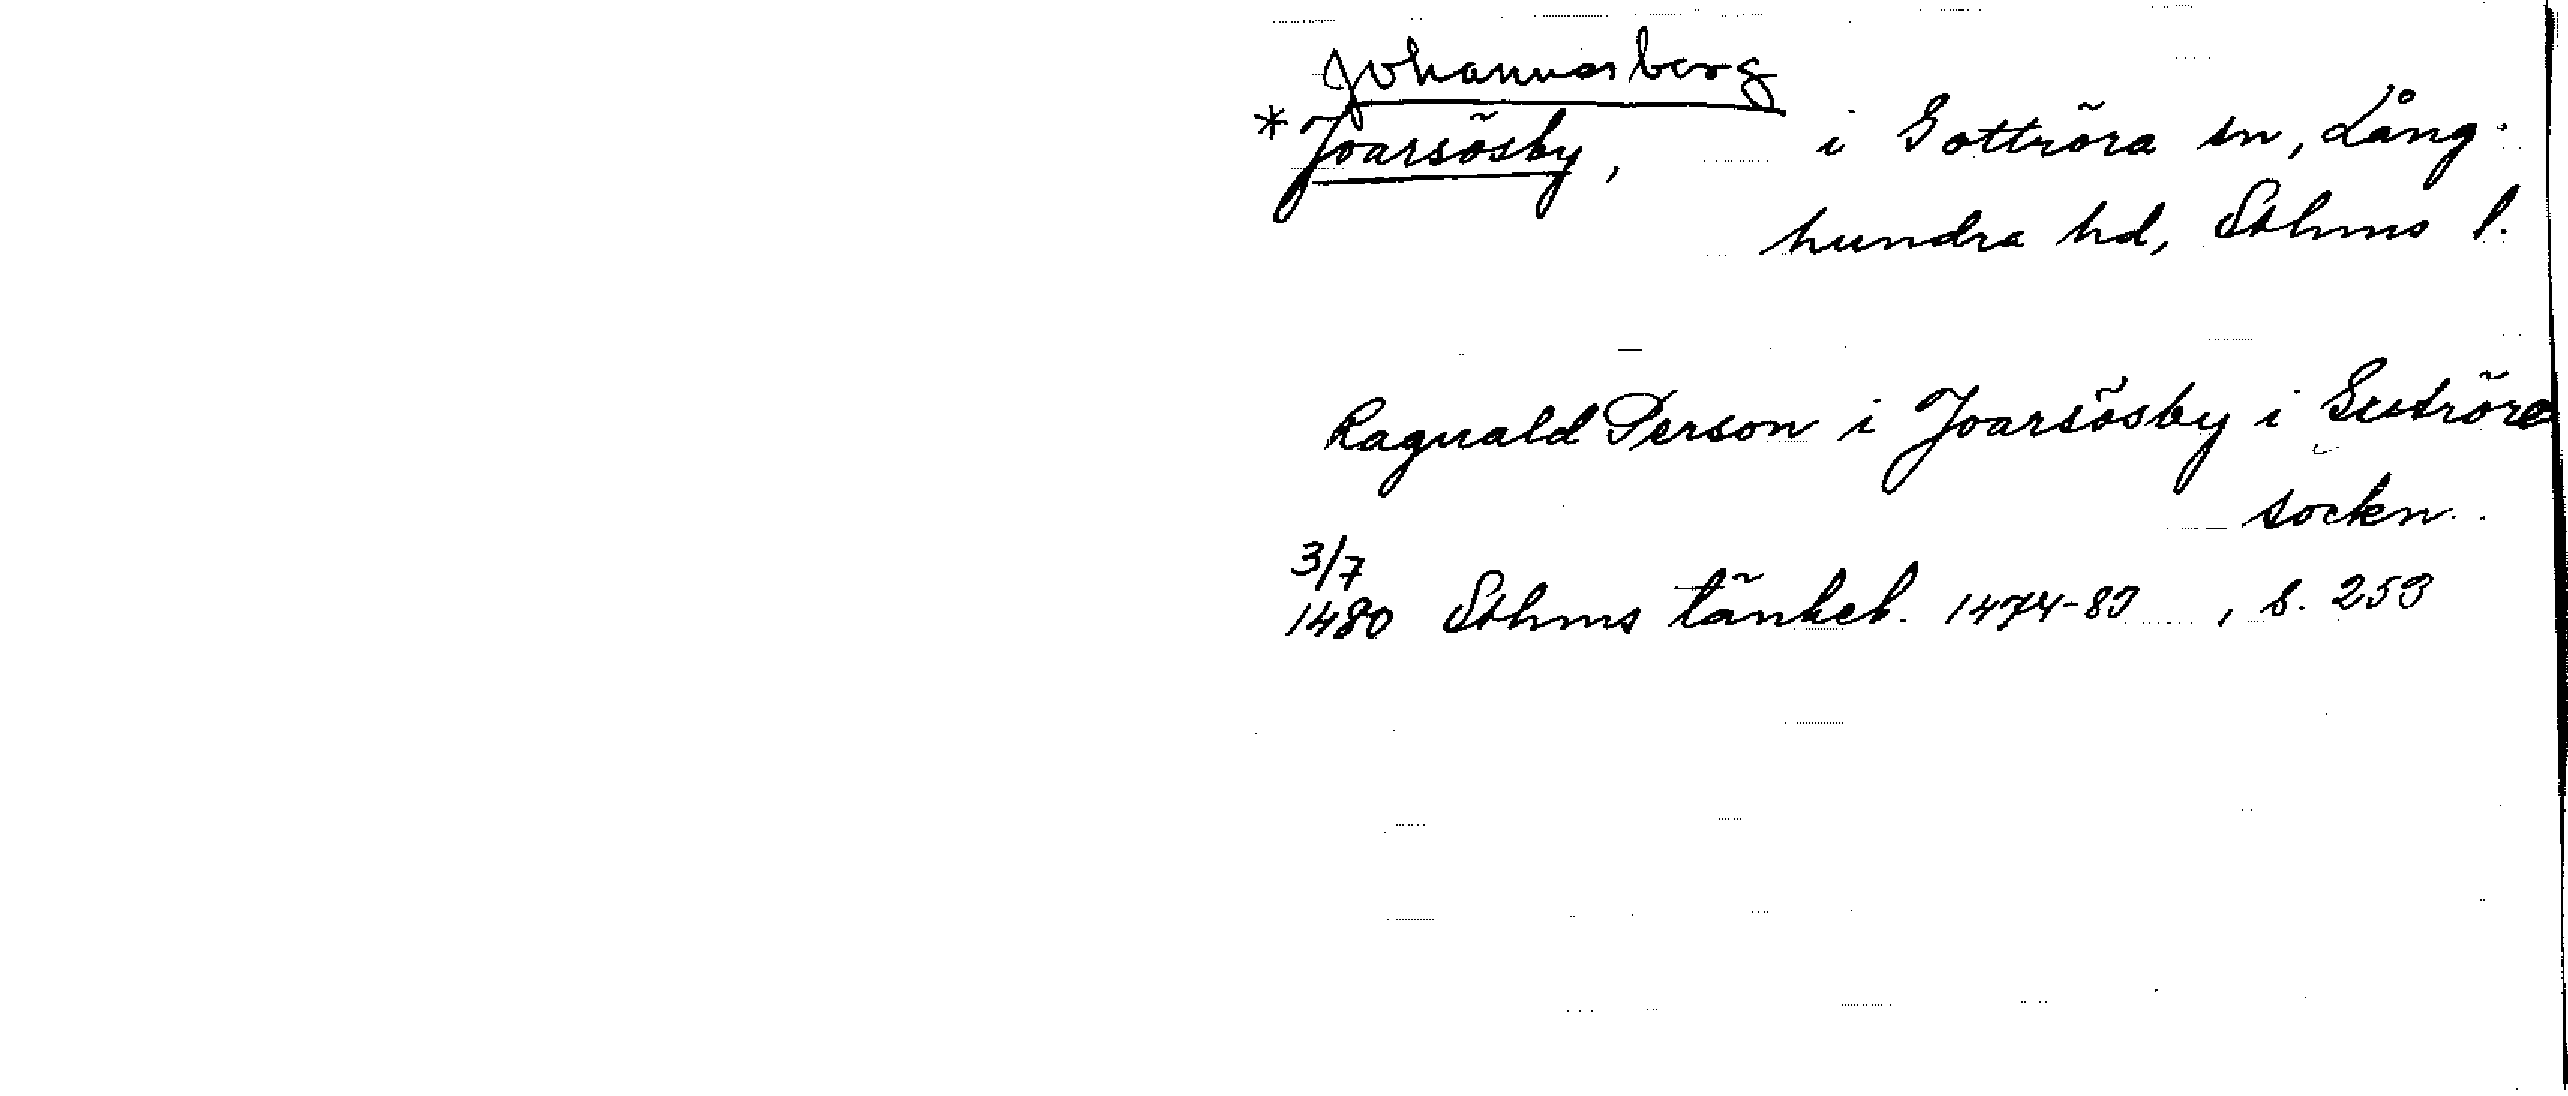 Johannesberg
* Joarsösby, i Gottröra sn, Lång-
hundra hd, Sthms l.
Raguald Person i Joarsösby i Gutröra
sockn.
3/7
1480 Sthms tänkeb. 1474-83, s. 253